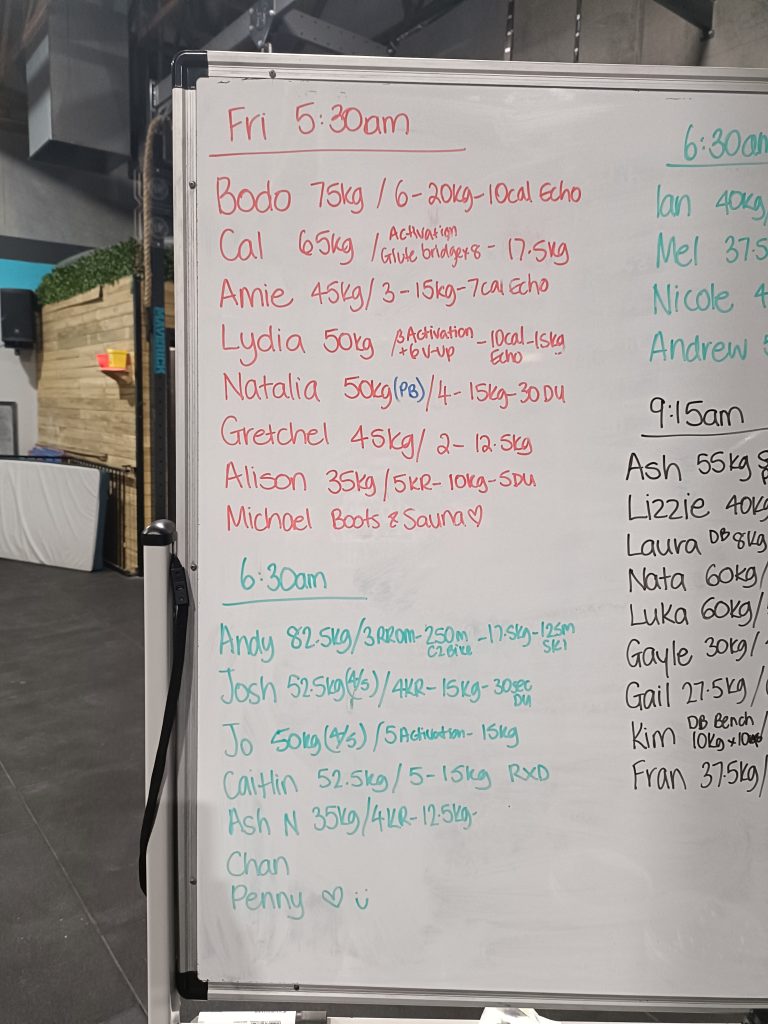 Fri 5:30am
Bodo 75kg / 6-20kg-10cal Echo
Cal 65kg / Activation Glute bridge x 8 - 17.5kg
Amie 45kg / 3-15kg-7cal Echo
Lydia 50kg / 3 Activation + 6 V-up - 10cal Echo - 15kg
Natalia 50kg (PB) / 4-15kg-30 DU
Gretchel 45kg / 2-12.5kg
Alison 35kg / 5KR-10kg-5DU
Michael Boots & Sauna ♡
6:30am
Andy 82.5kg / 3RROM-250m C2 Bike - 17.5kg-125m SKI
Josh 52.5kg (4/5) / 4KR-15kg-30sec DU
Jo 50kg (4/5) / 5 Activation - 15kg
Caitlin 52.5kg / 5-15kg RXD
Ash N 35kg / 4KR-12.5kg-
Chan
Penny ♡ ü
6:30am
Ian 40kg/
Mel 37.5
Nicole 4
Andrew 5
9:15am
Ash 55kg
Lizzie 40kg
Laura DB 8kg
Nata 60kg/
Luka 60kg/
Gayle 30kg/
Gail 27.5kg/
Kim DB Bench 10kg x 10 /
Fran 37.5kg/
MAVERICK